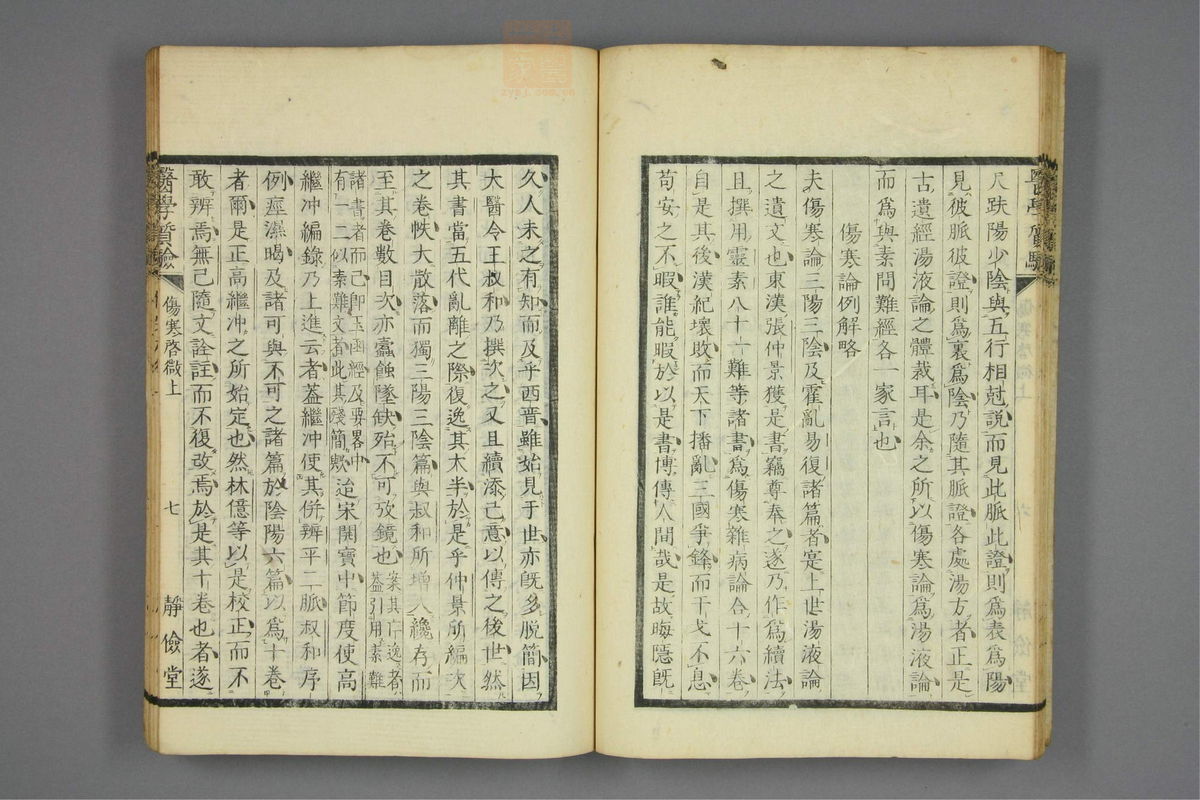 尺趺陽少陰與五行相尅說而見此脈此證則爲表爲陽
見彼脈彼證則爲裏爲陰乃隨其脈證各處湯方者正是
古遺經湯液論之體裁耳是余之所以傷寒論爲湯液論
而爲與素問難經各一家言也
傷寒論例解略
夫傷寒論三陽三陰及霍亂易復諸篇者寔上世湯液論
之遺文也東漢張仲景獲是書竊尊奉之遂乃作爲續法
且撰用靈素八十一難等諸書爲傷寒雜病論合十六卷
自是其後漢紀壞敗而天下播亂三國爭鋒而干戈不息
苟安之不暇誰能暇於以是書博傳人間哉是故晦隱旣
醫學質驗
久人未之有知而及乎西晋雖始見于世亦旣多脫簡因
大醫令王叔和乃撰次之又且續添己意以傳之後世然
其書當五代亂離之際復逸其大半於是乎仲景所編次
之卷帙大散落而獨三陽三陰篇與叔和所增入纔存而
至其卷數目次亦蠹蝕墜缺殆不可攷鏡也案其亡逸者蓋引用素難
諸書者而已卽玉函經及要畧中有一二似素難文者此其殘簡歟迨宋開寶中節度使高
繼冲編錄乃上進云者蓋繼冲使其併辨平二脈叔和序
例痙濕暍及諸可與不可之諸篇於陰陽六篇以爲十卷
者爾是正高繼冲之所始定也然林億等以是校正而不
敢辨焉無己隨文詮註而不復改焉於是其十卷也者遂
醫學質驗
傷寒啓微上
七
靜儉堂